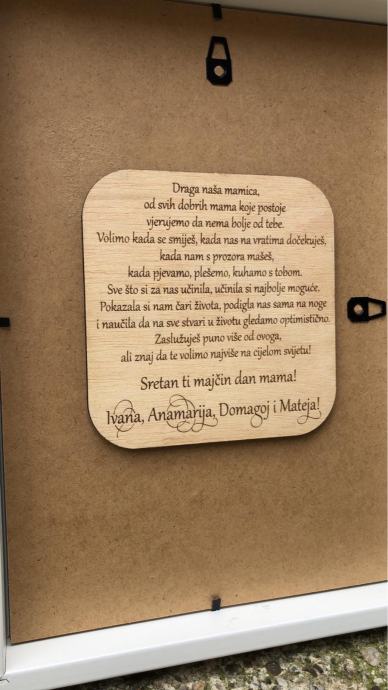 Draga naša mamica,
od svih dobrih mama koje postoje
vjerujemo da nema bolje od tebe.
Volimo kada se smiješ, kada nas na vratima dočekuješ,
kada nam s prozora mašeš,
kada pjevamo, plešemo, kuhamo s tobom.
Sve što si za nas učinila, učinila si najbolje moguće.
Pokazala si nam čari života, podigla nas sama na noge
i naučila da na sve stvari u životu gledamo optimistično.
Zaslužuješ puno više od ovoga,
ali znaj da te volimo najviše na cijelom svijetu!
Sretan ti majčin dan mama!
Ivana, Anamarija, Domagoj i Mateja!